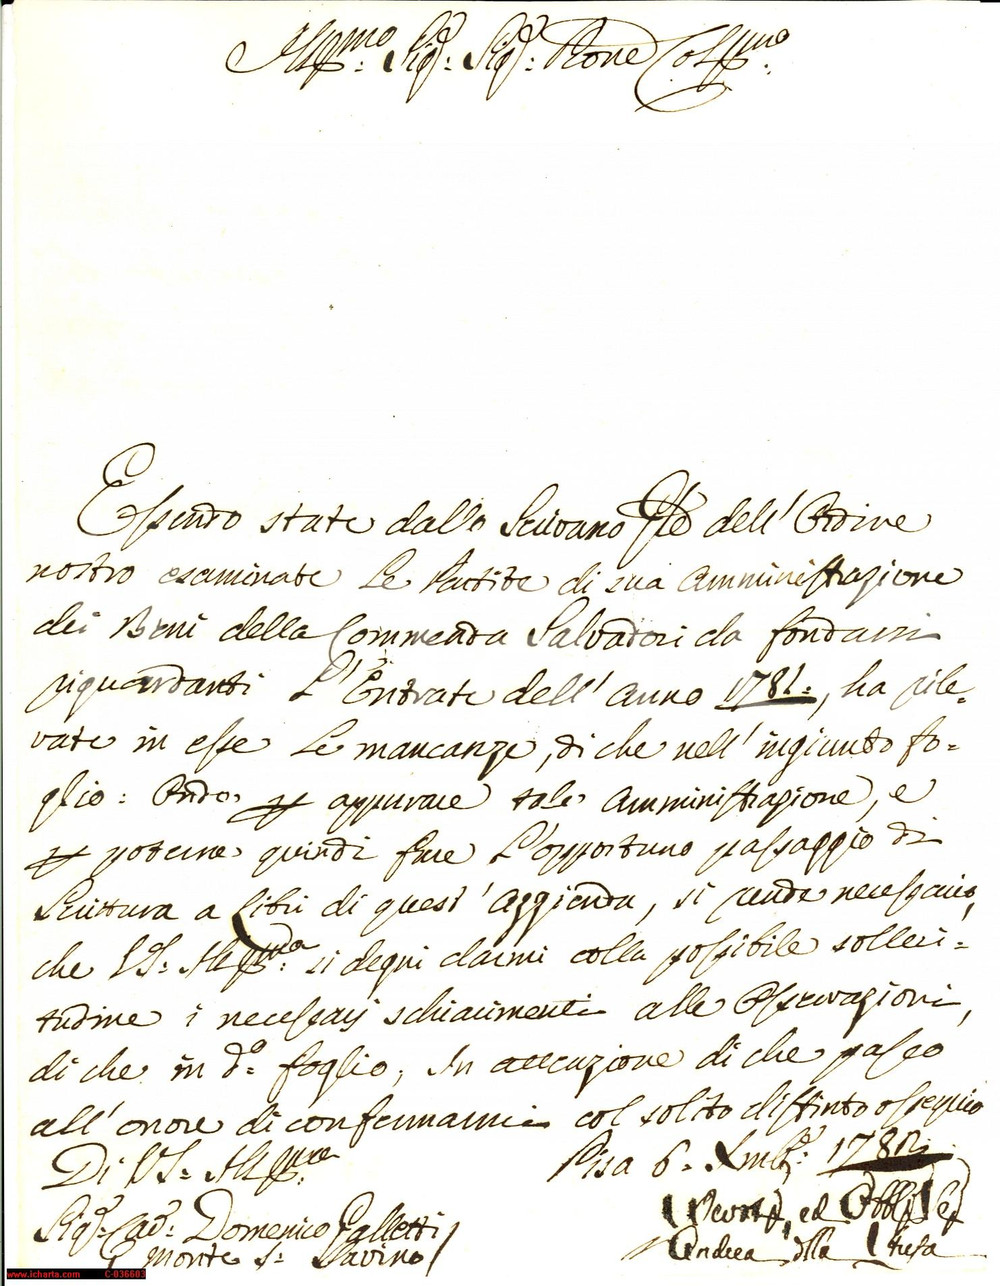 Illmo: Sigr: Sigr: Prone Colmo:
Essendo state dallo Scrivano Gle dell' Ordine
nostro esaminate le Partite di sua Amministrazione
dei Beni della Commenda Salvadori da fondarsi
riguardanti l'Entrate dell' Anno 1781:, ha rile-
vate in esse le mancanze, di che nell' ingiunto fo-
glio: Onde appurare tale Amministrazione, e
potere quindi fare l'opportuno passaggio di
Scrittura a Libri di quest' Azzienda, si rende necessario,
che VS: Illma: si degni darmi colla possibile solleci-
tudine i necessarj schiarimenti alle Osservazioni,
di che in do: foglio; In attenzione di che passo
all' onore di confermarmi col solito distinto ossequio
Di VS: Illma:
Pisa 6: Xmbr: 178
Sigr: Cav: Domenico Galletti
Monte S: Savino
Devoto, ed Obbl Ser
Andrea della
www.icharta.com C-036603